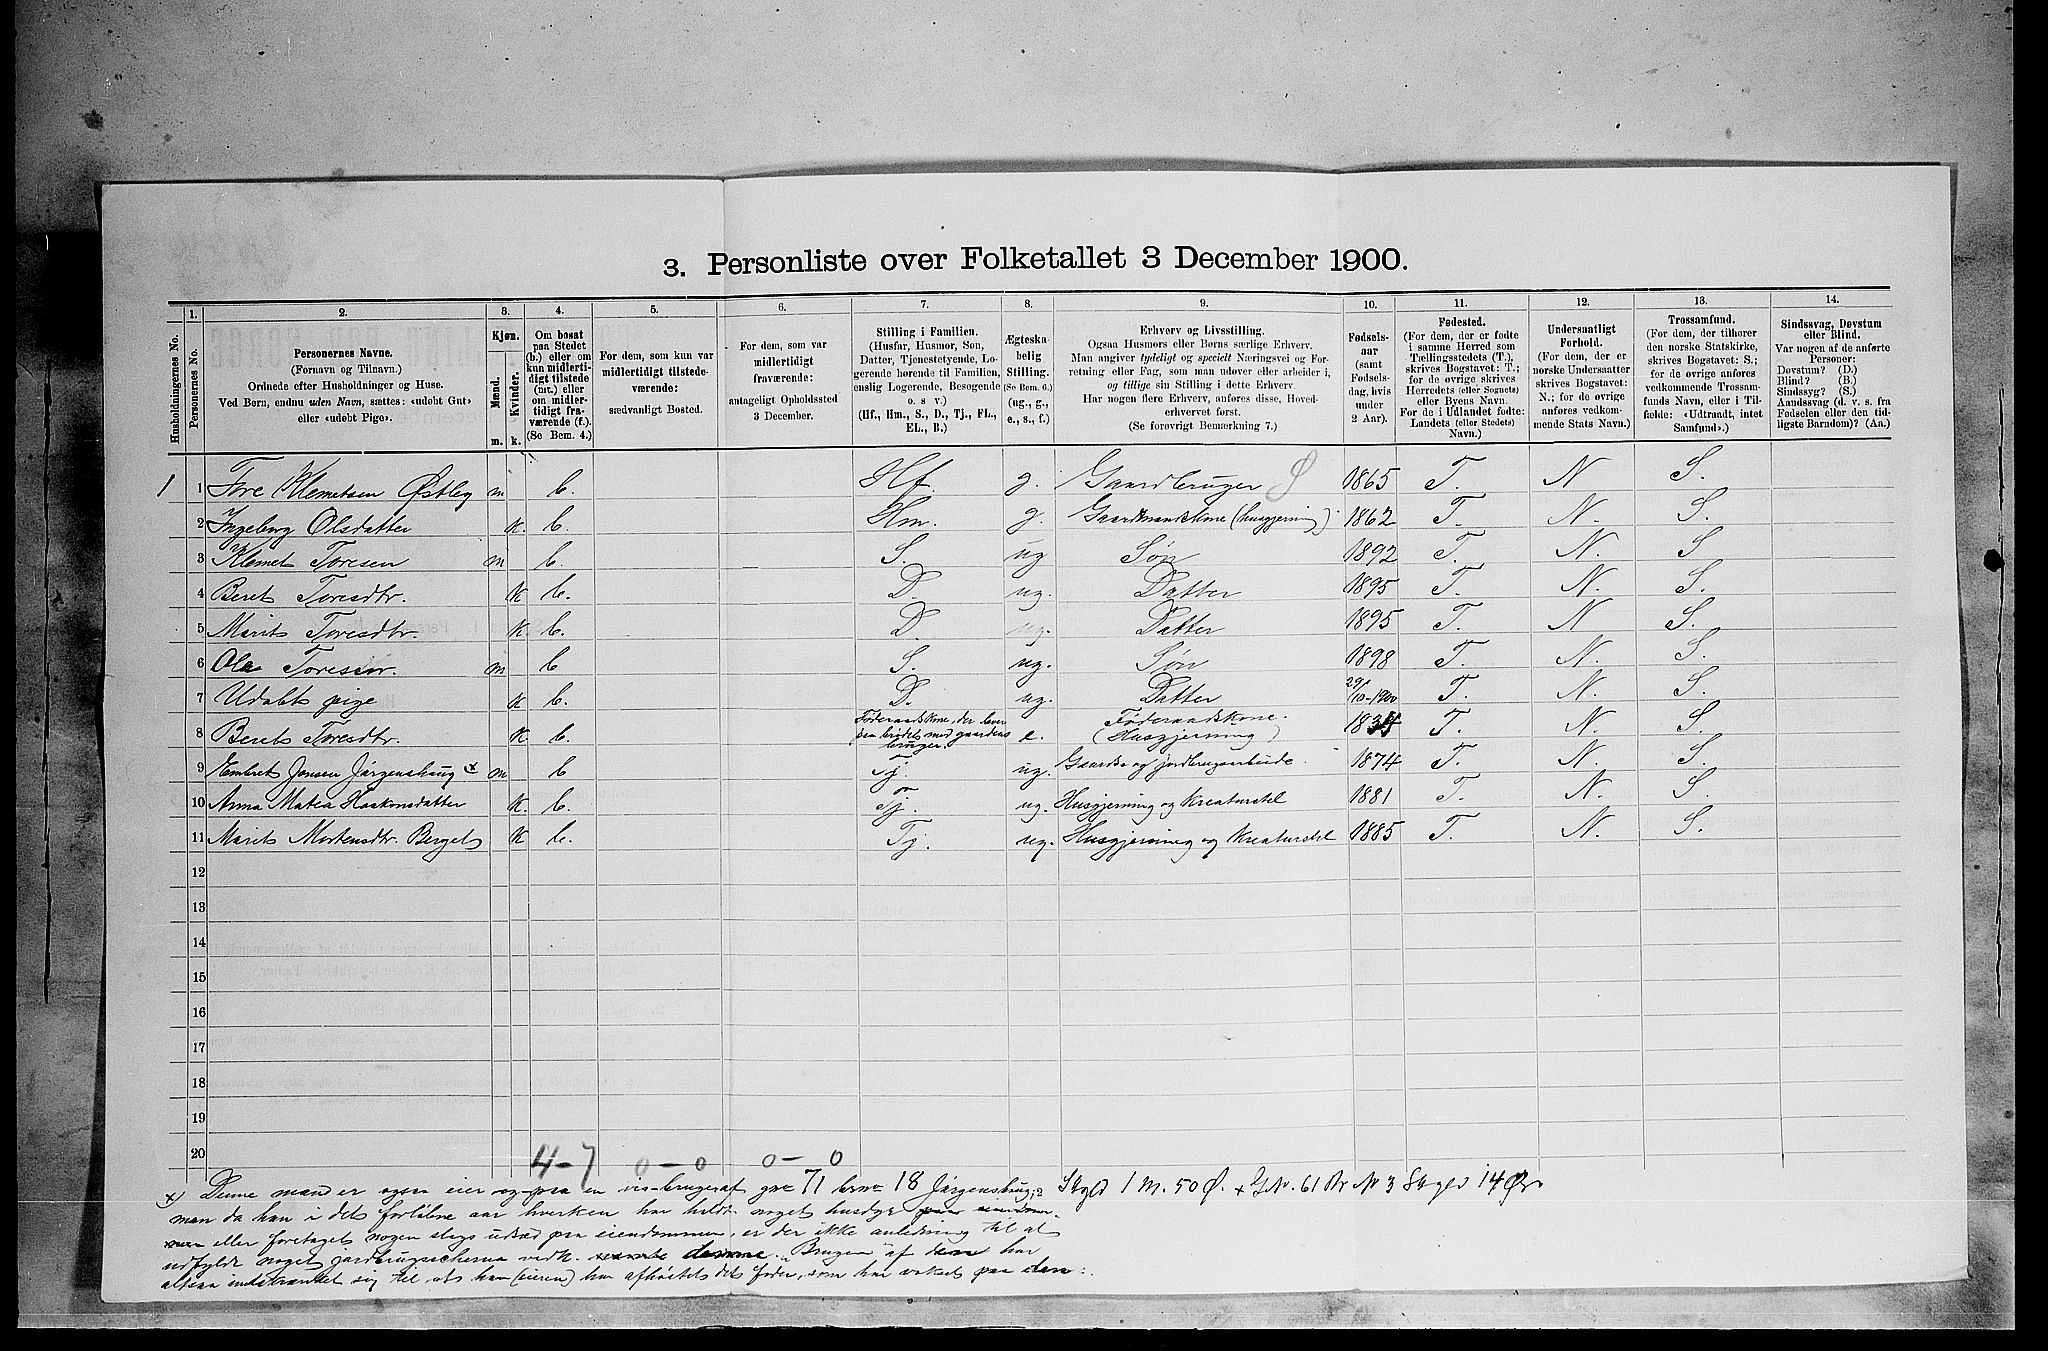 3. Personliste over Folketallet 3 December 1900.
Husholdningernes No.
1.
Personernes No.
2.
Personernes Navne.
(Fornavn og Tilnavn.)
Ordnede efter Husholdninger og Huse.
Ved Børn, endnu uden Navn, sættes: «udøbt Gut»
eller «udøbt Pige».
3.
Kjøn.
Mænd.
Kvinder.
m.
k.
4.
Om bosat
paa Stedet
(b.) eller om
kun midlerti-
digt tilstede
(mt.) eller
om midler-
tidigt fra-
værende (f.).
(Se Bem. 4.)
5.
For dem, som kun var
midlertidigt tilstede-
værende:
sædvanligt Bosted.
6.
For dem, som var
midlertidigt
fraværende:
antageligt Opholdssted
3 December.
7.
Stilling i Familien.
(Husfar, Husmor, Søn,
Datter, Tjenestetyende, Lo-
gerende hørende til Familien,
enslig Logerende, Besøgende
o. s v.)
(Hf., Hm., S., D., Tj., FL.,
EL., B.)
8.
Ægteska-
belig
Stilling.
(Se Bem. 6.)
(ug., g.,
e., s., f.)
9.
Erhverv og Livsstilling.
Ogsaa Husmors eller Børns særlige Erhverv.
Man angiver tydeligt og specielt Næringsvei og For-
retning eller Fag, som man udøver eller arbeider i,
og tillige sin Stilling i dette Erhverv.
Har nogen flere Erhverv, anføres disse, Hoved-
erhvervet først.
(Se forøvrigt Bemærkning 7.)
10.
Fødsels-
aar
(samt
Fødsels-
dag, hvis
under
2 Aar).
11.
Fødested.
(For dem, der er fødte
i samme Herred som
Tællingsstedets (T.),
skrives Bogstavet: T.;
for de øvrige skrives
Herredets (eller Sognets)
eller Byens Navn.
For de i Udlandet fødte:
Landets (eller Stedets)
Navn.)
12.
Undersaatligt
Forhold.
(For dem, der er
norske Undersaatter
skrives Bogstavet:
N.; for de øvrige
anføres vedkom-
mende Stats Navn.)
13.
Trossamfund.
(For dem, der tilhører
den norske Statskirke,
skrives Bogstavet: S.;
for de øvrige anføres
vedkommende Trossam-
funds Navn, eller i Til-
fælde: «Udtraadt, intet
Samfund».)
14.
Sindssvag, Døvstum
eller Blind.
Var nogen af de anførte
Personer:
Døvstum? (D.)
Blind? (B.)
Sindssyg? (S.)
Aandssvag (d. v. s. fra
Fødselen eller den tid-
ligste Barndom)? (Aa.)
1 1 Tore Klemetsen Østby m b. Hf. g. Gaardbruger 1865 T. N S.
2 Ingeborg Olsdatter k. b. Hm. g. Gaardmandskone (husgjerning) 1862 T. N. S.
3 Klemet Toresen m b. S. ug Søn 1892 T. N. S
4 Beret Toresdtr. k b. D. ug. Datter 1895 T. N. S.
5 Marit Toresdtr. k. b. D. ug. Datter 1895 T. N S.
6 Ole Toresen. m b S. ug. Søn 1898 T. N. S.
7 Udøbt pige k b. D. ug. Datter 29/10-1900 T. N. S.
8 Beret Toresdtr. k b. Føderaadskone, der lever paa brødet med gaardens bruger. e. Føderaadskone. (Husgjerning) T. N. S.
9 Embret Jonsen Jørgenshaug x m b Tj. ug. Gaards og jordbrugsarbeide. 1874 T. N. S.
10 Anna Matea Haakonsdatter k. b. Tj. ug. Husgjerning og Kreaturstel 1881 T. N. S.
11 Marit Mortensdtr. Berget k b. Tj. ug. Husgjerning og Kreaturstel 1885 T. N. S.
12
13
14
15
16
17
18
19
20
4-7 0-0 0-0
x) Denne mand er ogsaa eier en af 71 18 Jørgenshaug, Skyld 1 M. 50 Ø. + GNr. 61 Br No 3 Skyld 14 Øre
man da han i det forløbne aar hverken har holdt noget husdyr
eller foretaget nogen slags udsæd paa eiendommen, er der ikke anledning til at
udfylde noget jordbrugsschema vedk. denne. Brugen af den har
altsaa indskrænket sig til at han (eieren) har afhøstet det foder, som har vokset paa den.